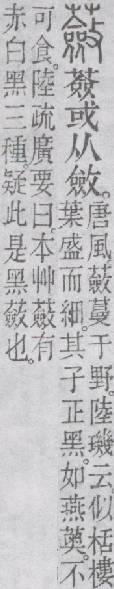 蘞薟或从斂。唐風蘞蔓于野。陸璣云似栝樓
葉盛而細。其子正黑如燕薁。不
可食。陸疏廣要曰。本艸蘞有
赤白黑三種。疑此是黑蘞也。